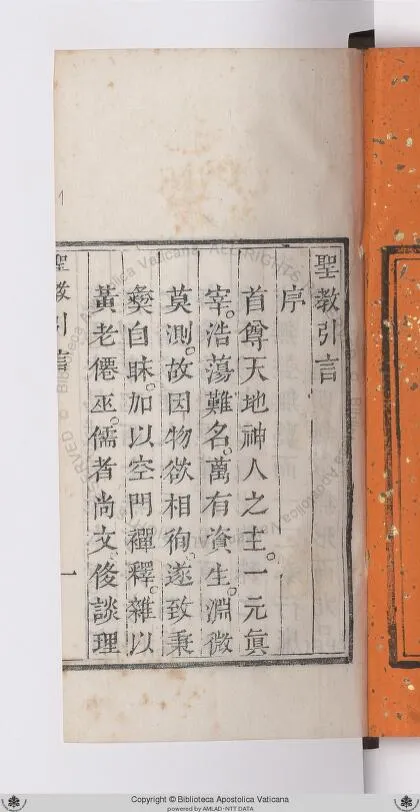 聖教引言
序
首尊天地神人之主。一元眞
宰。浩蕩難名。萬有資生。淵微
莫測。故因物欲相徇。遂致秉
彝自昧。加以空門禪釋。雜以
黃老僊巫。儒者尚文。後談理
聖教引言
一
1
Copyright © Biblioteca Apostolica Vaticana
powered by AMLAD-NTT DATA